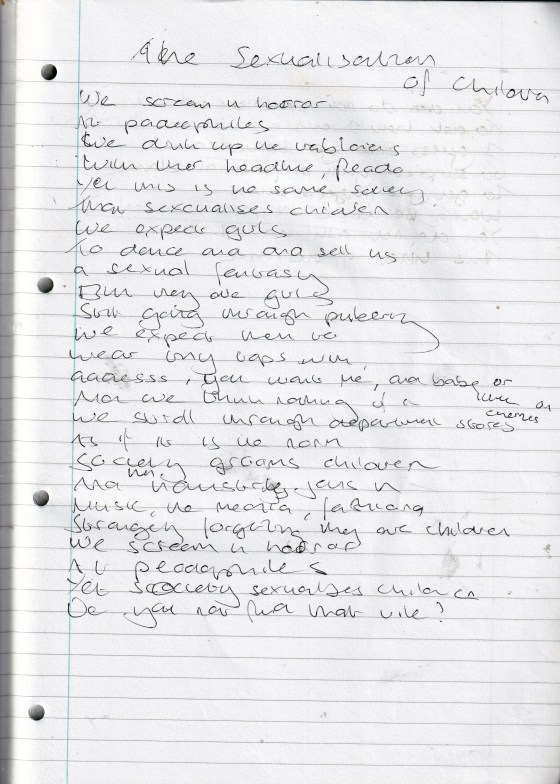 The Sexualisation
of Children
We scream in horror
At paedophiles
We drink up the tabloids
With their headline, Peado
Yet this is the same society
That sexcualises children
We expect girls
To dance and and sell us
a sexual fantasy
But they are girls
Still going through puberty
We expect them to
wear tiny tops with
, you want me, and babe or
And we think nothing of it
We stroll through department stores
As if it is the norm
Society grooms children
And
Music, the media, fashiong
Strangely forgeting they are children
We scream in horror
At peadophiles
Yet society sexualises children
Do you not find that vile?